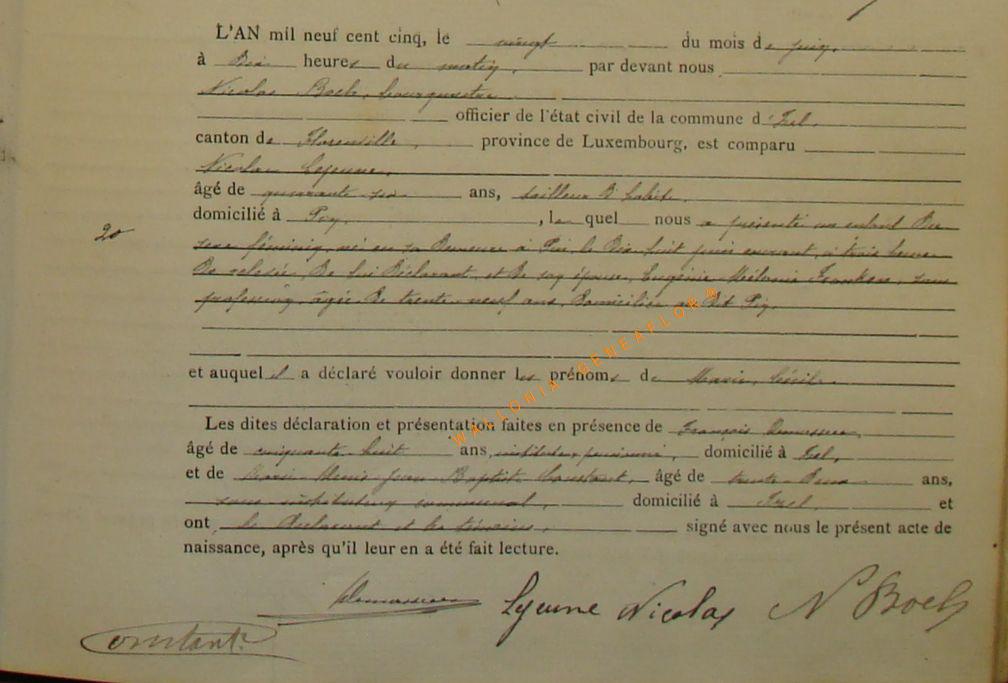 L'AN mil neuf cent cinq, le vingt du mois de juin,
à Dix heures du matin, par devant nous
Nicolas Boeb, bourgmestre
officier de l'état civil de la commune d'Izel,
canton de Florenville, province de Luxembourg, est comparu
Nicolas Lejeune,
âgé de quarante six ans, tailleur d'habits
domicilié à Pin, lequel nous a présenté un enfant Du
20
sexe féminin, né en sa Demeure à Pin le Dix huit juin courant, à trois heures
De relevée, De lui Déclarant, et De son épouse, Eugénie Mélanie, sans
profession, âgée De trente-neuf ans, Domiciliée au Dit Pin,
et auquel il a déclaré vouloir donner les prénoms de Marie, Cécile.
Les dites déclaration et présentation faites en présence de François
âgé de cinquante huit ans, instituteur pensionné, domicilié à Izel,
et de Jean Baptiste Constant, âgé de trente Deux ans,
sous instituteur communal, domicilié à Izel, et
ont le Déclarant et les témoins, signé avec nous le présent acte de
naissance, après qu'il leur en a été fait lecture.
Lejeune Nicolas N Boeb
Constant
WALLONIA-GENEAFLOR®